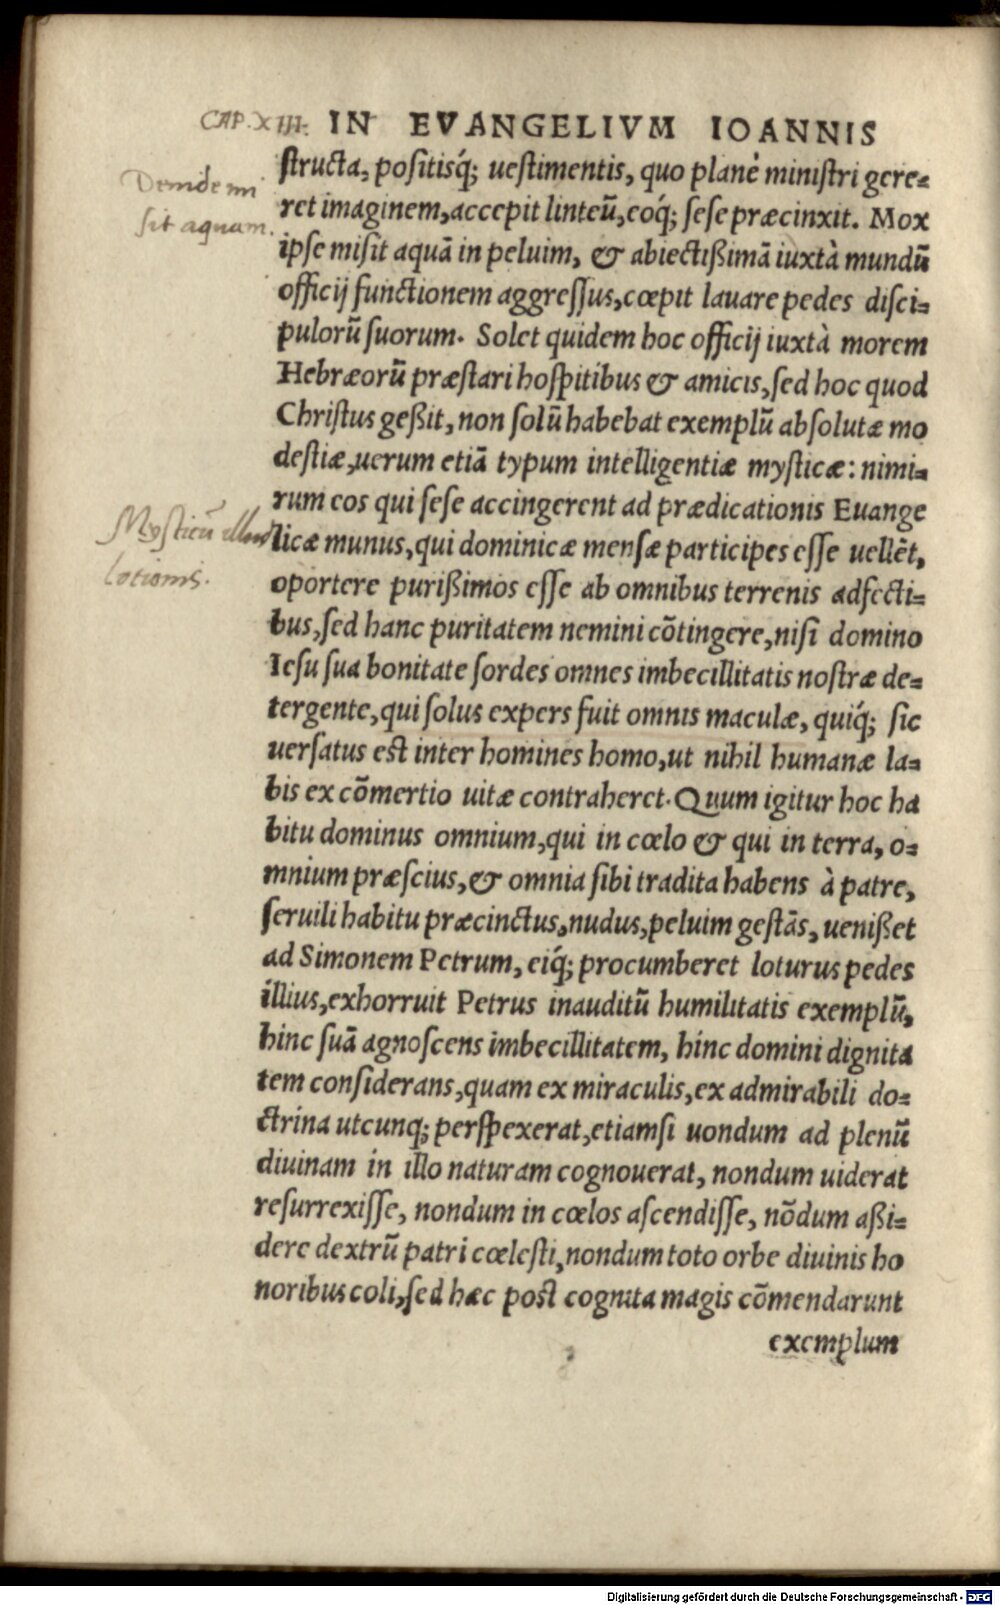 CAP. XIII. IN EVANGELIVM IOANNIS
structa, positisq́; uestimentis, quo planè ministri gere=
Deinde mi
ret imaginem, accepit linteũ, eóq́; sese præcinxit. Mox
sit aquam.
ipse misit aquã in peluim, & abiectißimã iuxtà mundũ
officij functionem aggressus, cœpit lauare pedes disci=
pulorũ suorum. Solet quidem hoc officij iuxtà morem
Hebræorũ præstari hospitibus & amicis, sed hoc quod
Christus geßit, non solũ habebat exemplũ absolutæ mo
destiæ, uerum etiã typum intelligentiæ mysticæ: nimi=
rum eos qui sese accingerent ad prædicationis Euange
Mysticũ
licæ munus, qui dominicæ mensæ participes esse uellẽt,
lotionis.
oportere purißimos esse ab omnibus terrenis adfecti=
bus, sed hanc puritatem nemini cõtingere, nisi domino
Iesu sua bonitate sordes omnes imbecillitatis nostræ de=
tergente, qui solus expers fuit omnis maculæ, quiq́; sic
uersatus est inter homines homo, ut nihil humanæ la=
bis ex cõmertio uitæ contraheret. Quum igitur hoc ha
bitu dominus omnium, qui in cœlo & qui in terra, o=
mnium præscius, & omnia sibi tradita habens à patre,
seruili habitu præcinctus, nudus, peluim gestãs, uenißet
ad Simonem Petrum, eiq́; procumberet loturus pedes
illius, exhorruit Petrus inauditũ humilitatis exemplũ,
hinc suã agnoscens imbecillitatem, hinc domini dignita
tem considerans, quam ex miraculis, ex admirabili do=
ctrina utcunq; perspexerat, etiamsi uondum ad plenũ
diuinam in illo naturam cognouerat, nondum uiderat
resurrexisse, nondum in cœlos ascendisse, nõdum aßi=
dere dextrũ patri cœlesti, nondum toto orbe diuinis ho
noribus coli, sed hæc post cognita magis cõmendarunt
exemplum
Digitalisierung gefördert durch die Deutsche Forschungsgemeinschaft - DFG